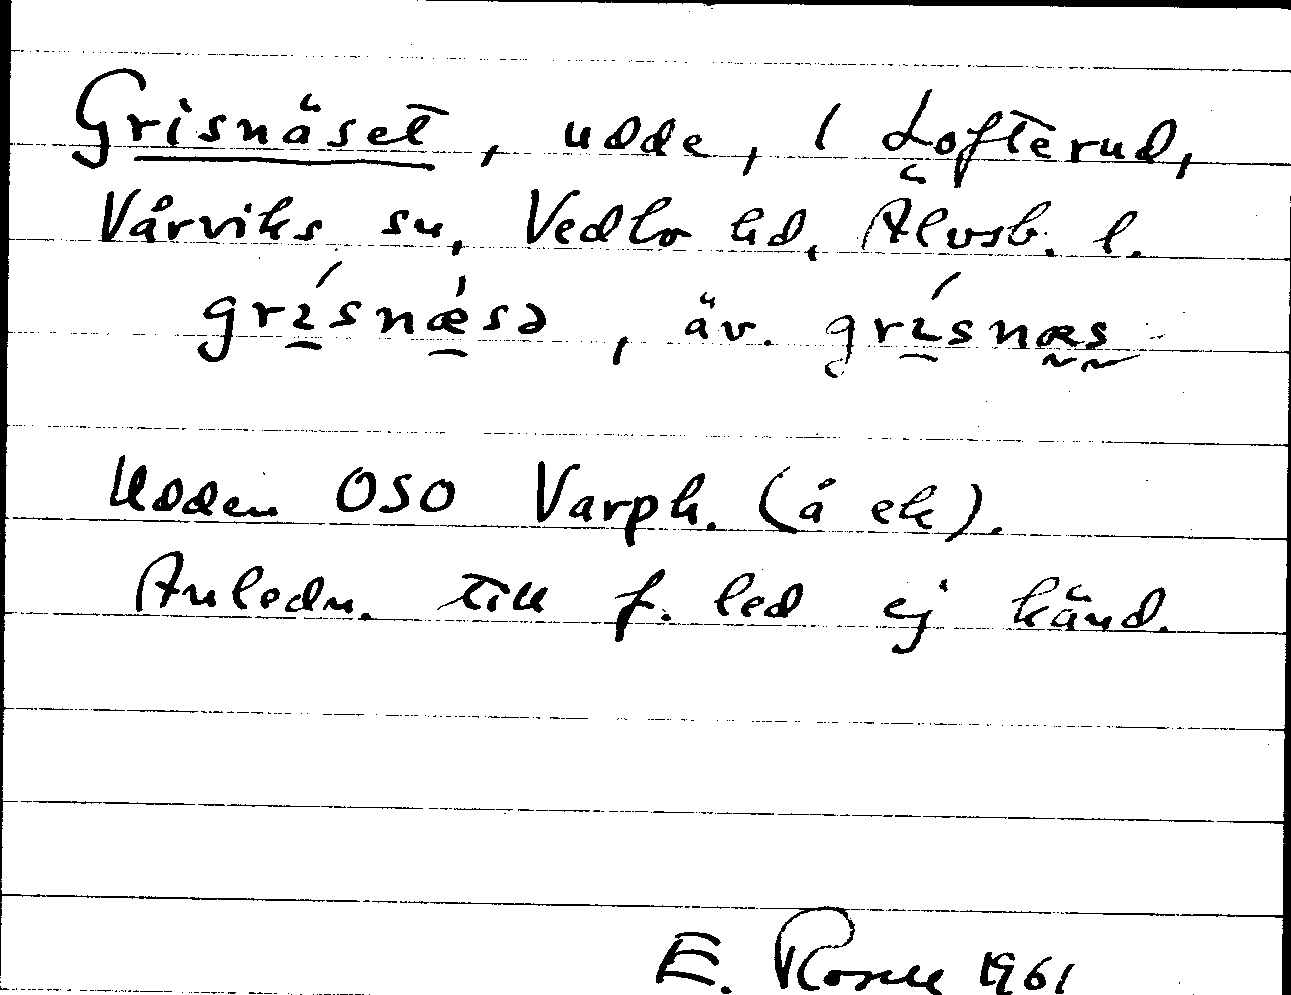 Grisnäset, udde, 1 Lofterud,
Vårviks sn, Vedbo hd, Älvsb. l.
grí̱snǽ̱sə, äv. grí̱snæs
Udden OSO Varph. (å ek).
Anledn. till f. led ej känd.
E. Rosell 1961